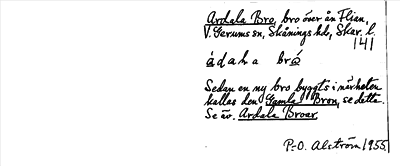 Ardala Bro, bro över ån Flian,
V. Gerums sn, Skånings hd, Skar. l.
141
ádaḷa bró
Sedan en ny bro byggts i närheten
kallas den Gamla Bron, se detta.
Se äv. Ardala Broar.
P-O. Alström 1955